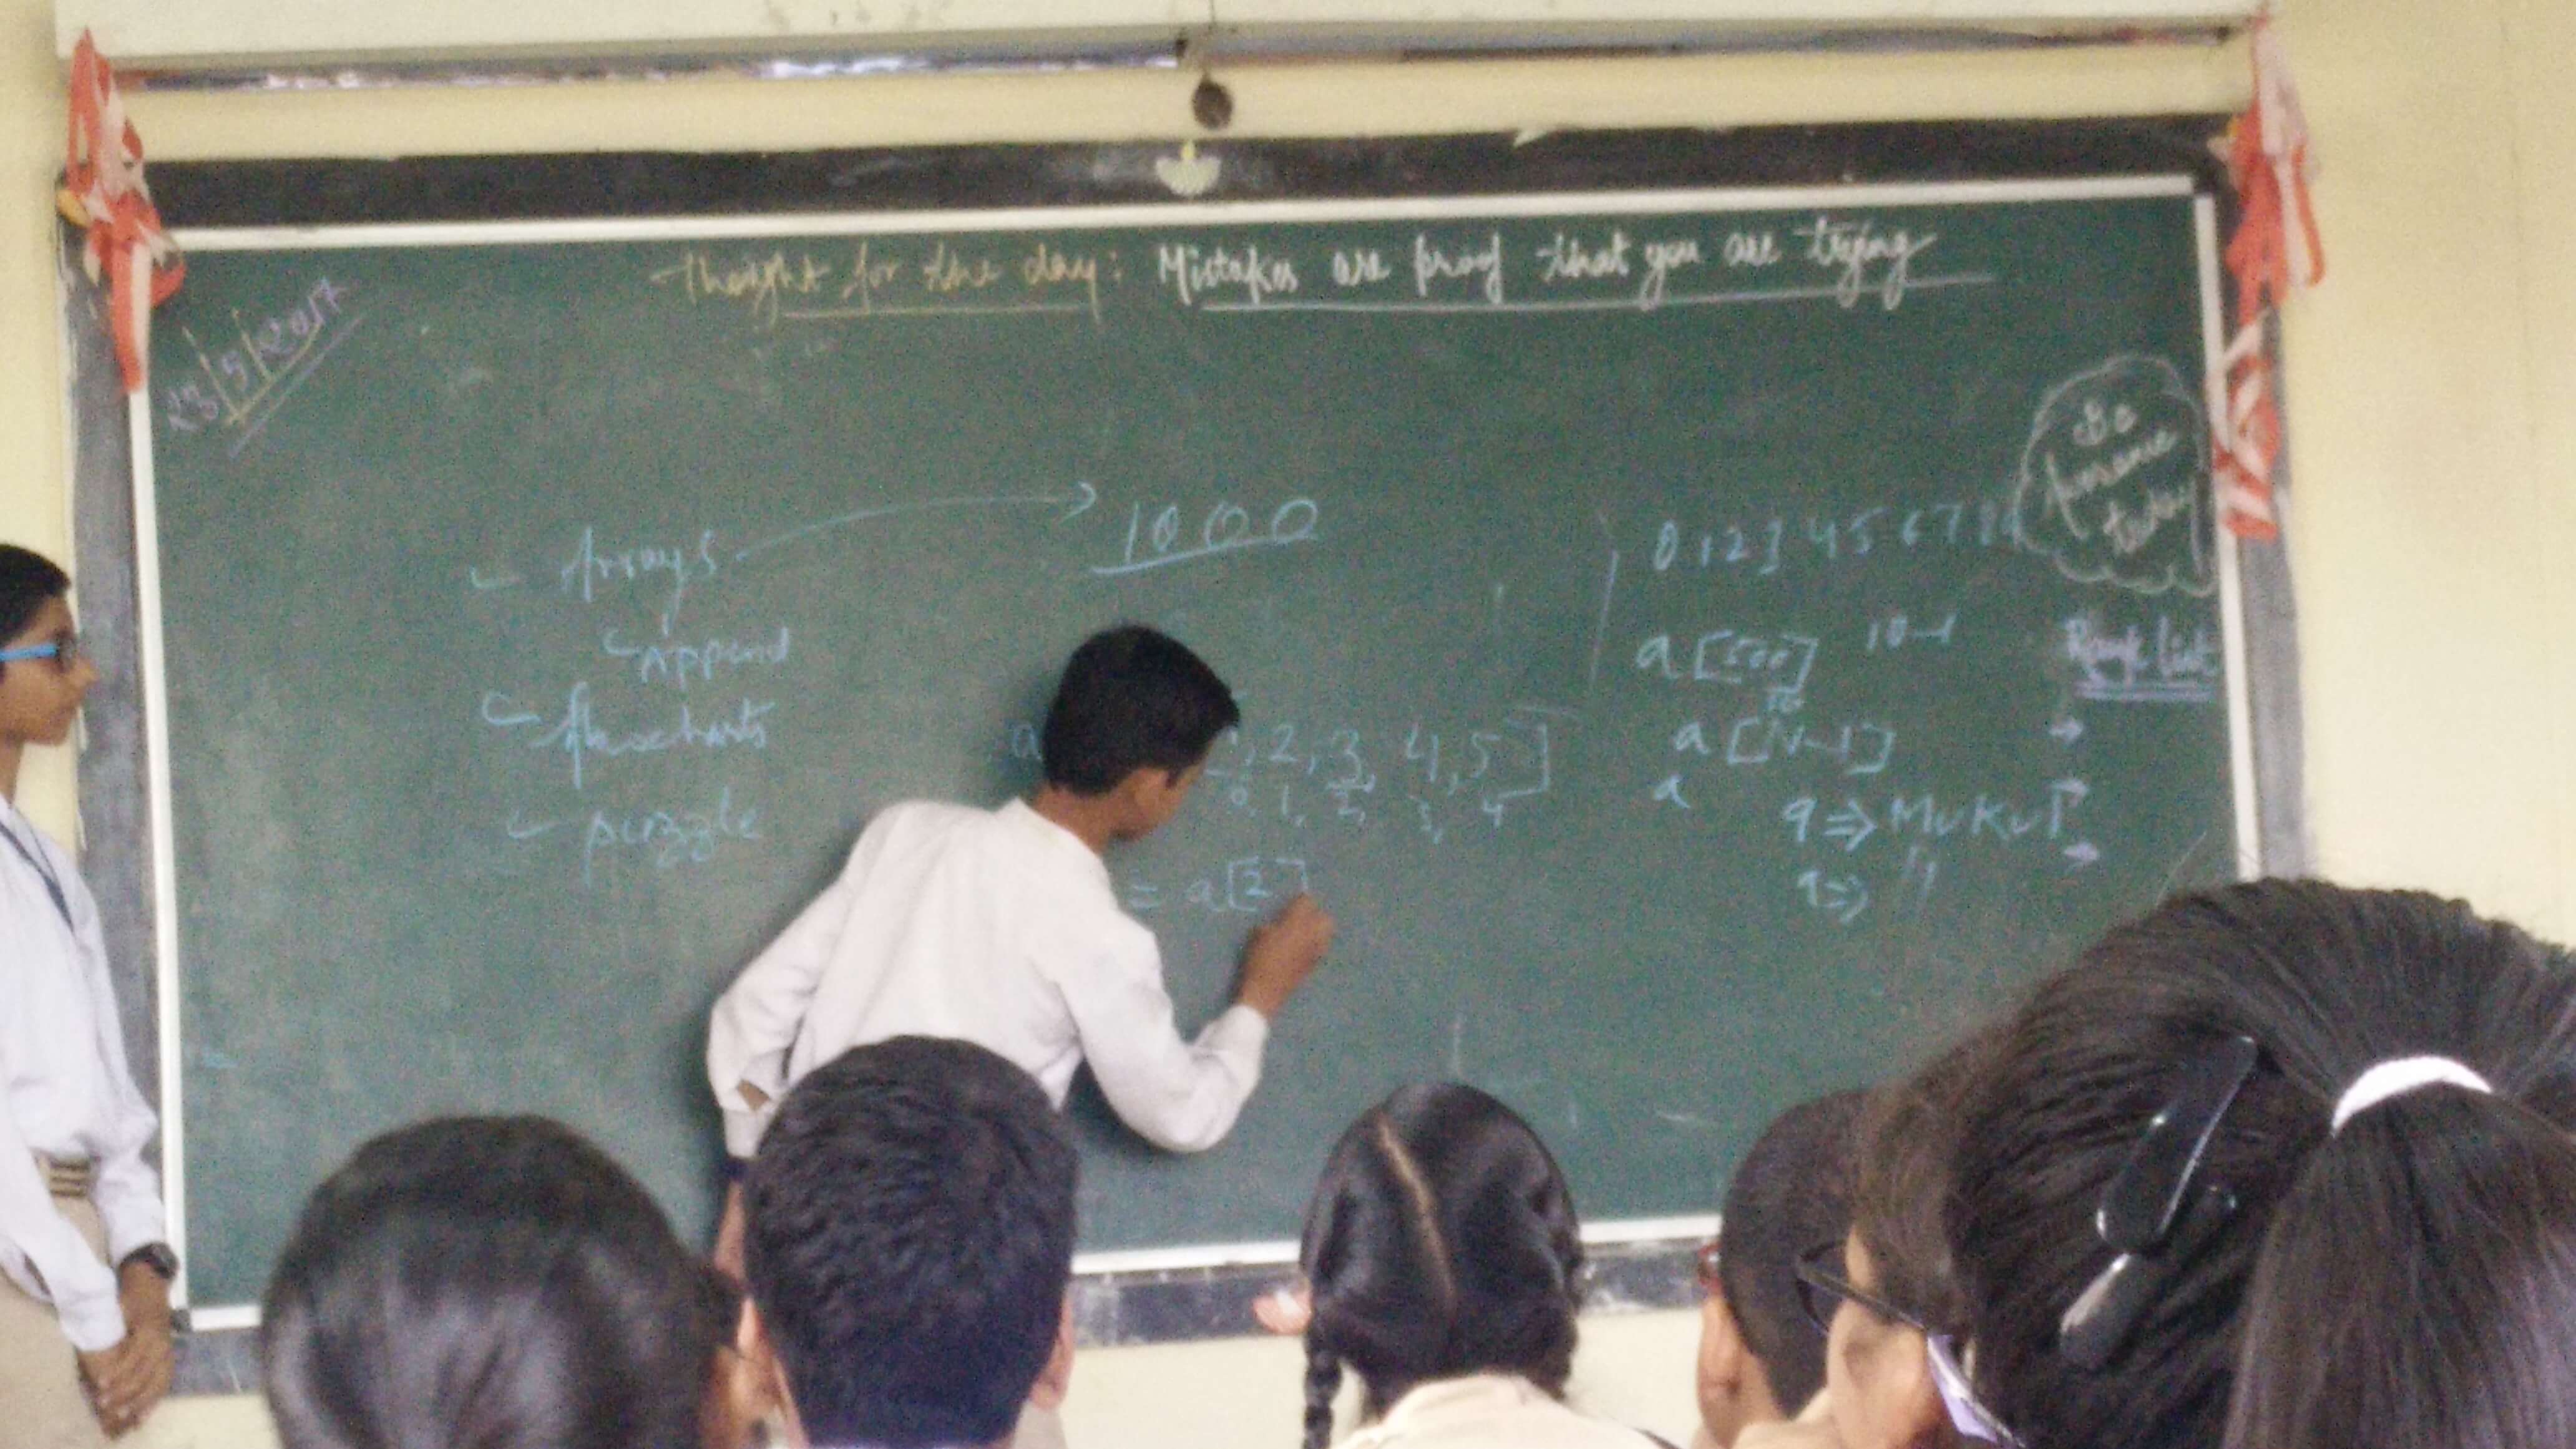 Thought for the day: Mistakes are proof that you are trying
23/5/2017
Arrays
Append
flowcharts
puzzle
1000
a
, 2, 3, 4, 5]
0, 1, 2, 3, 4
= a[2]
0 1 2 3 4 5 6 7 8 9
a [500] 10-1
a [N-1]
a
9 ⇒ Mukul
9 ⇒ //
Be
Awesome
today
Rough list
→
→
→